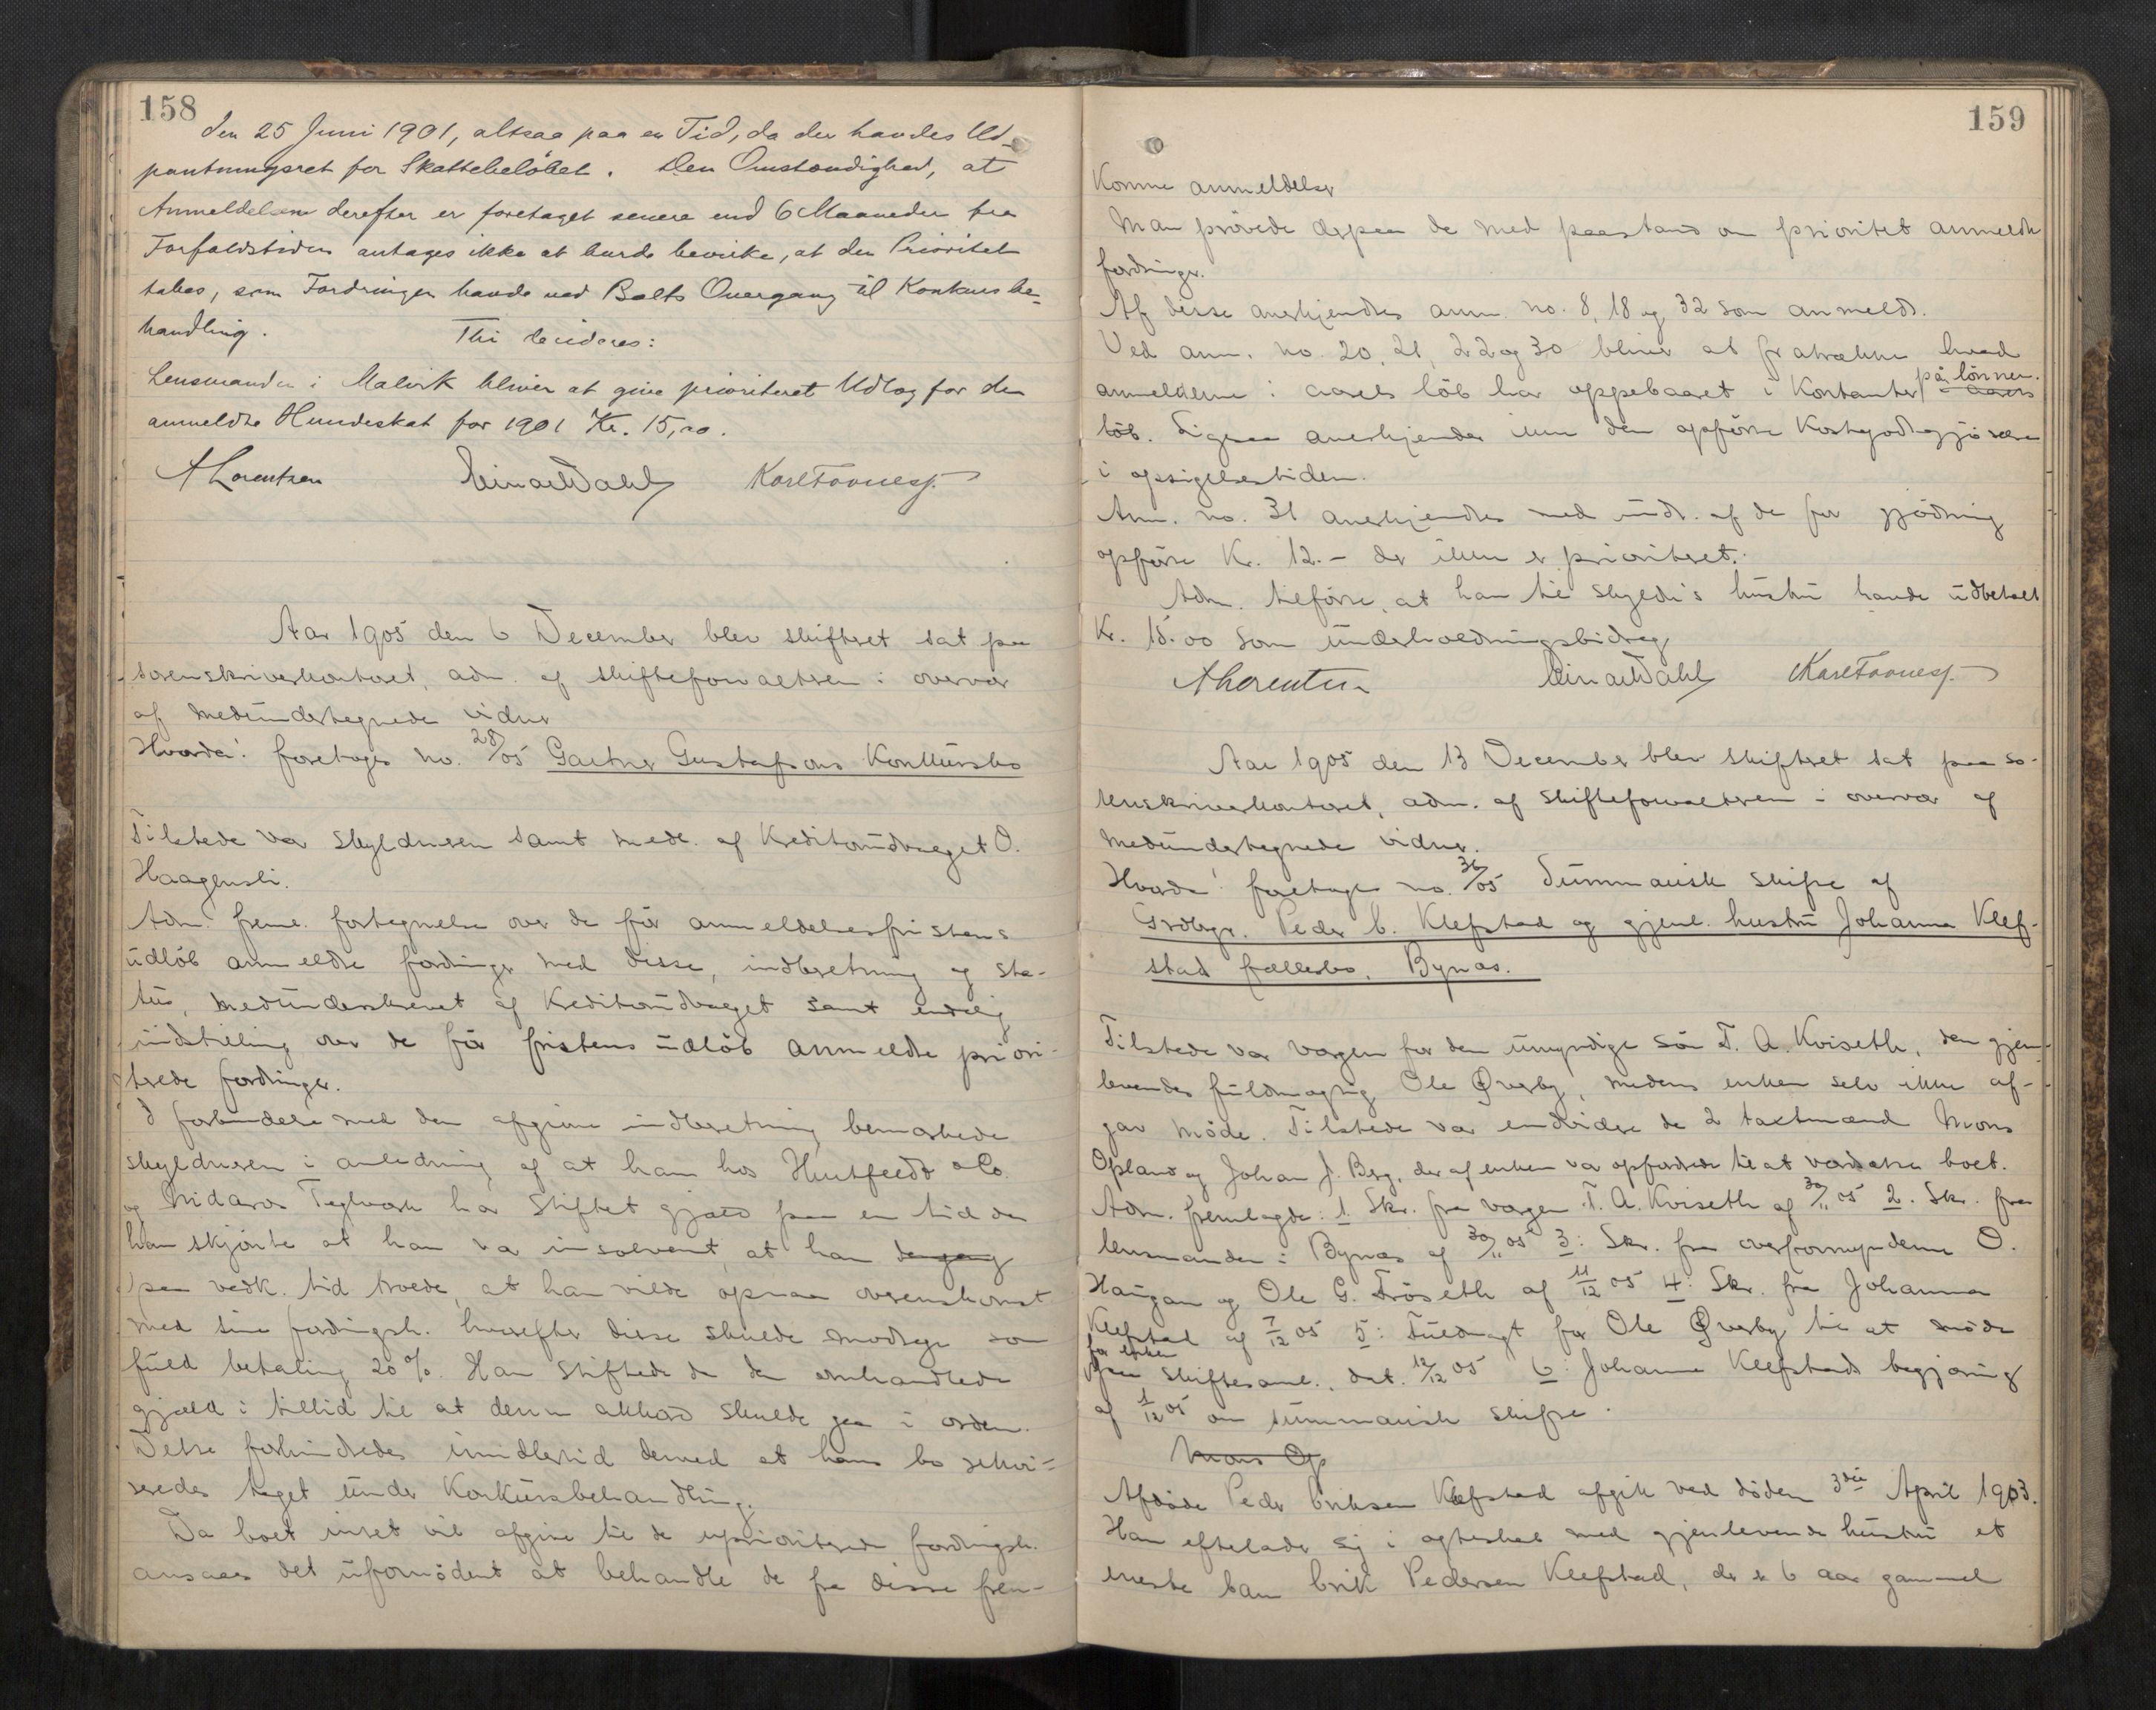 158
den 25 Juni 1901, altsaa paa en Tid, da der havdes Ud-
pantningsret for Skattebeløbet. Den Omstændighed, at
Anmeldelsen derefter er foretaget senere end 6 Maaneder fra
Forfaldstiden antages ikke at burde bevirke, at den Prioritet
tabes, som Fordringen havde ved Boets Overgang til Konkursbe-
handling. Thi decideres:
Lensmanden i Malvik bliver at give prioriteret Udlog for den
anmeldte Hundeskat for 1901 Kr. 15,00.
A Lorentzen Einar Dahl Karl Fornes
Aar 1905 den 6 December blev skifteret sat paa
sorenskriverkontoret, adm. af skifteforvalteren i overvær
af medundertegnede vidner
Hvorda: foretoges no. 28/05 Gartner Gustafsons Konkursbo
Tilstede var skyldneren samt medl. af Kreditorudvalget O.
Haagensli.
Adm. freml. fortegnelse over de før anmeldelsesfristens
udløb anmeldte fordringer med disse, indberetning og sta-
tus, medunderskrevet af Kreditorudvalget samt endelig
indstilling over de før fristens udløb anmeldte priori-
terede fordringer.
I forbindelse med den afgivne indberetning bemærkede
skyldneren i anledning af at han hos Huitfeldt & Co.
og Nidaros Teglverk har stiftet gjæld paa en tid da
han skjønte at han var insolvent, at han dengang
paa vedk. tid troede, at han vilde opnaa overenskomst
med sine fordringsh. hvorefter disse skulde modtage som
fuld betaling 20%. Han stiftede da den omhandlede
gjæld i tillid til at denne akkord skulde gaa i orden.
Dette forhindredes imidlertid derved at hans bo rekvi-
reredes taget under Konkursbehandling.
Da boet intet vil afgive til de uprioriterede fordringsh.
ansaaes det ufornødent at behandle de fra disse frem-
159
komne anmeldelser
Man prøvede derpaa de med paastand om prioritet anmeldte
fordringer.
Af disse anerkjendtes anm. no. 8, 18 og 32 som anmeldt.
Ved anm. no. 20, 21, 22 og 30 bliver at fratrække hvad
anmelderne i aarets løb har oppebaaret i Kontanter på lönnen. aarens
løb. Ligesaa anerkjendes ikke den opførte Kostgodtgjørelse
i opsigelsestiden.
Anm. no. 31 anerkjendtes med undt. af de for gjødning
opførte Kr. 12.- der ikke er prioriteret.
Adm. tilførte, at han til skyldn's hustru havde udbetalt
Kr. 15.00 som underholdningsbidrag
A Lorentzen Einar Dahl Karl Fornes
Aar 1905 den 13 December blev skifteret sat paa so-
renskriverkontoret, adm. af skifteforvalteren i overvær af
medundertegnede vidner.
Hvorda: foretoges no. 36/05 Summarisk skifte af
Grdbgr. Peder E. Klefstad og gjenl. hustru Johanna Klef-
stad fællesbo, Bynes.
Tilstede var vorgen for den umyndige søn T. A. Kviseth, den gjen-
levendes fuldmægtig Ole Øverby, medens enken selv ikke af-
gav møde. Tilstede var endvidere de 2 taxtmænd Mons
Opland og Johan J. Berg, der af enken var opfordrede til at værdsætte boet.
Adm. fremlagde: 1 Skr. fra vorgen T. A. Kviseth af 30/11 05 2. Skr. fra
lensmanden i Bynes af 30/11 05 3: Skr. fra overformynderne O.
Haugan og Ole G. Frøseth af 11/12 05 4: Skr. fra Johanna
Klefstad af 7/12 05 5: Fuldmagt for Ole Øverby til at møde
for enken
paa skiftesaml., dat. 12/12 05 6: Johanna Klefstads begjæring
af 1/12 05 om summarisk skifte.
Mons Op
Afdøde Peder Eriksen Klefstad afgik ved døden 3die April 1903.
Han efterlader sig i ægteskab med gjenlevende hustru et
eneste barn Erik Pedersen Klefstad, der er 6 aar gammel